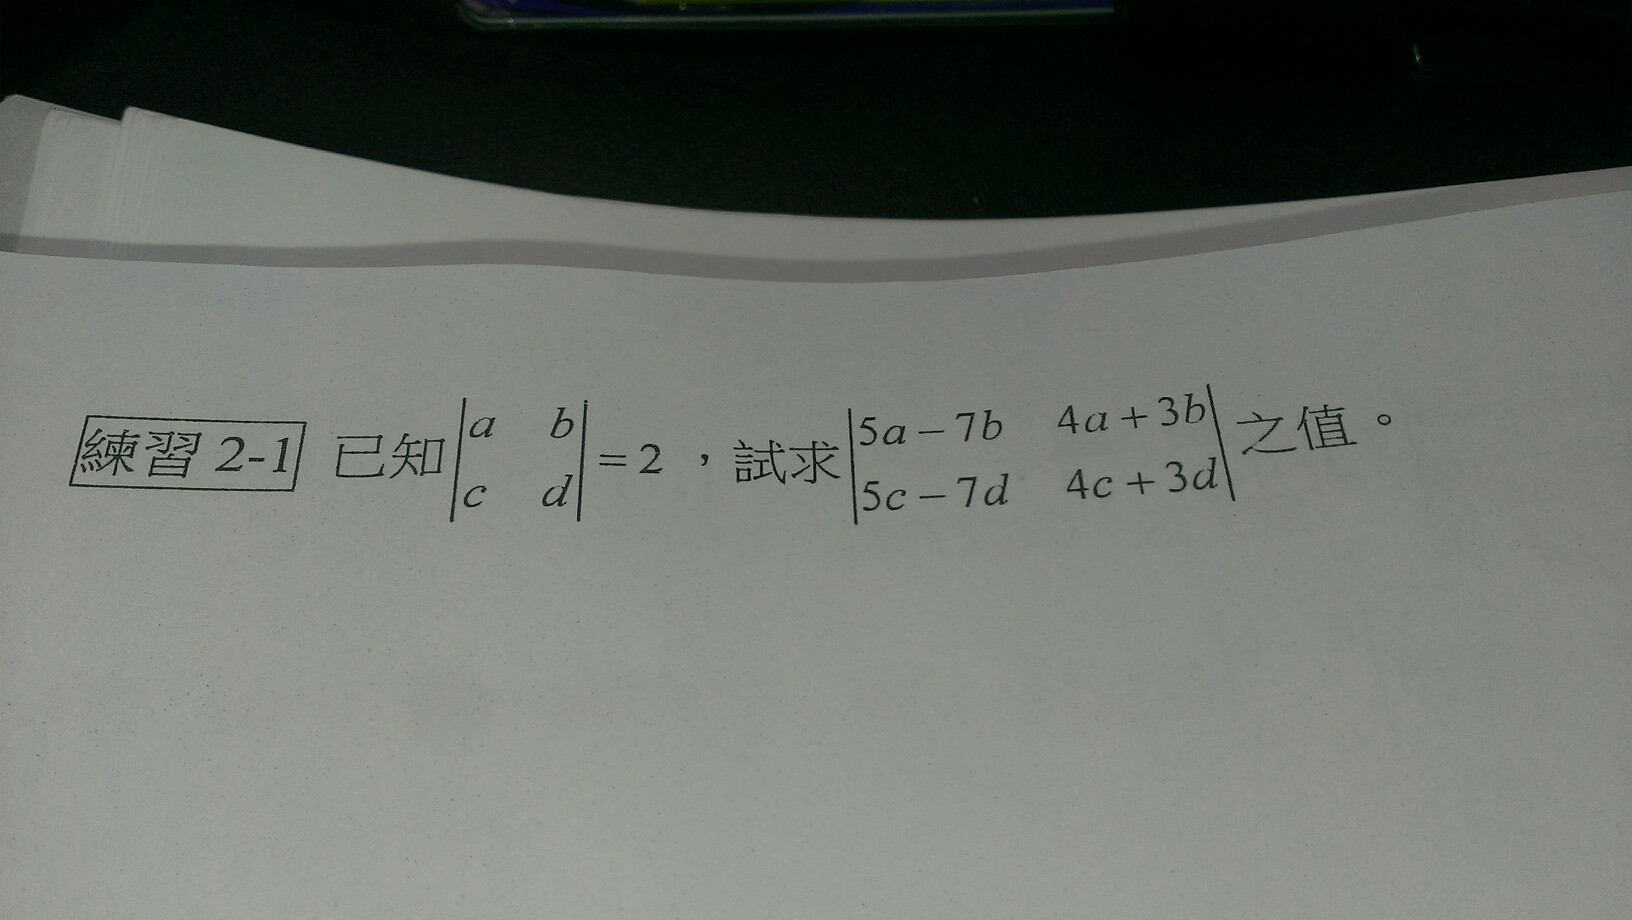 練習 2-1 已知 |a b; c d| = 2 ，試求 |5a − 7b 4a + 3b; 5c − 7d 4c + 3d| 之值。